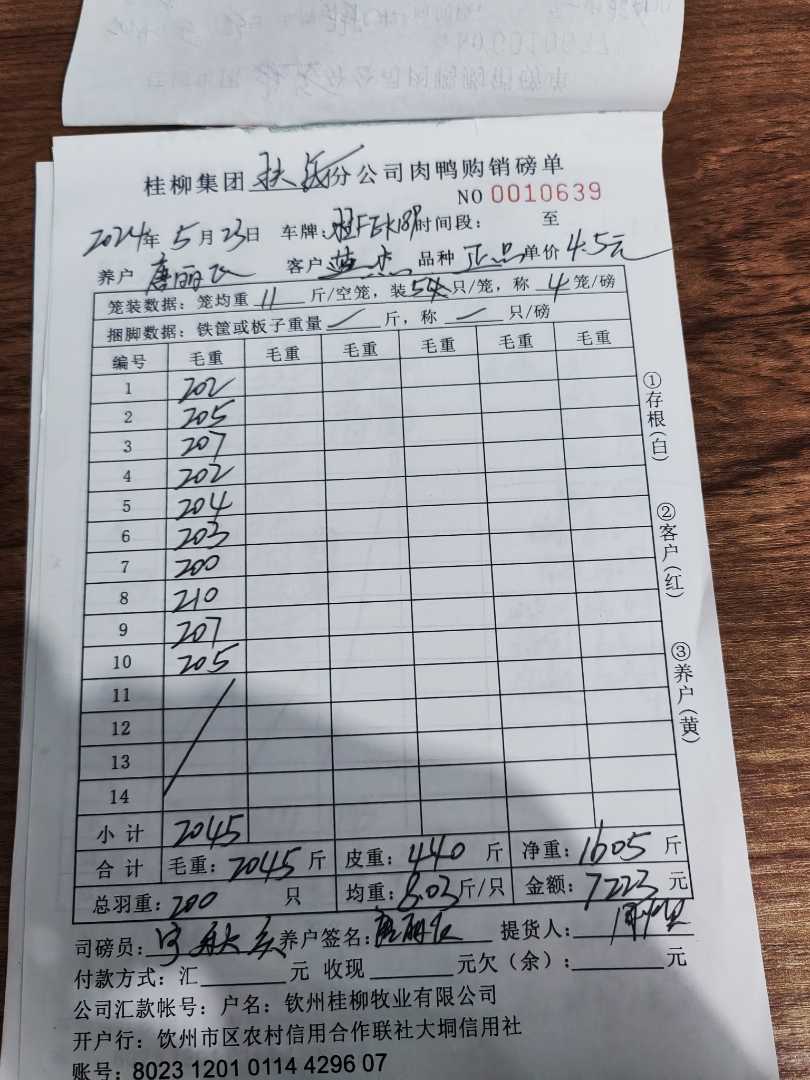 桂柳集团 扶绥份公司肉鸭购销磅单
NO 0010639
2024年 5月23日 车牌: 时间段: 至
养户 唐丽 客户 品种 正品 单价 4.5元
笼装数据: 笼均重 11 斤/空笼, 装5 只/笼, 称 4 笼/磅
捆脚数据: 铁筐或板子重量 / 斤, 称 / 只/磅
编号 毛重 毛重 毛重 毛重 毛重 毛重
1 202
2 205
3 207
4 202
5 204
6 203
7 200
8 210
9 207
10 205
11
12
13
14
小计 2045
合计 毛重: 2045 斤 皮重: 440 斤 净重: 1605 斤
总羽重: 200 只 均重: 8.03 斤/只 金额: 7223 元
司磅员: 养户签名: 提货人:
付款方式: 汇 元 收现 元欠(余): 元
公司汇款帐号: 户名: 钦州桂柳牧业有限公司
开户行: 钦州市区农村信用合作联社大垌信用社
账号: 8023 1201 0114 4296 07
①存根(白)
②客户(红)
③养户(黄)